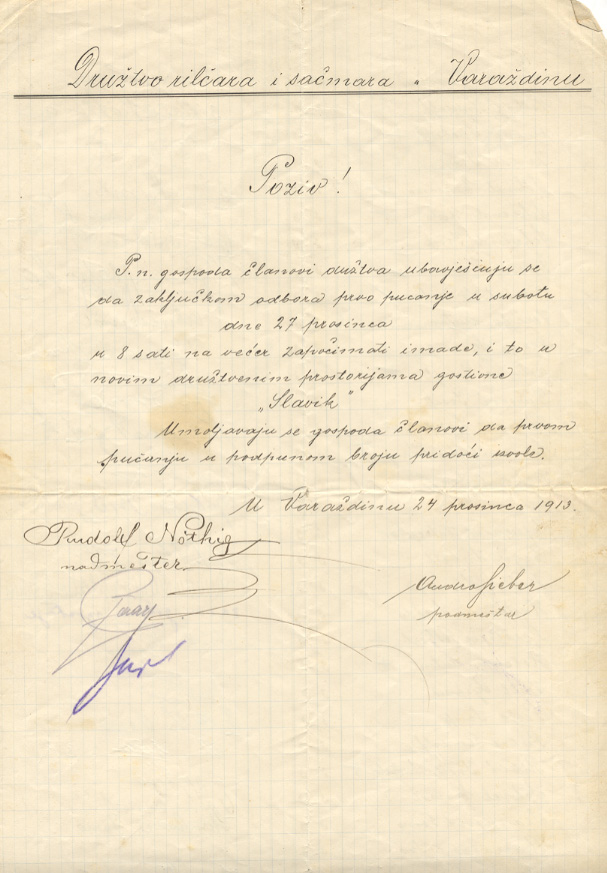 Družtvo rilčara i sačmara u Varaždinu
Poziv!
P. n. gospoda članovi družtva ubavješćuju se
da zaključkom odbora prvo pucanje u subotu
dne 27 prosinca
u 8 sati na večer započimati imade, i to u
novim družtvenim prostorijama gostione
„Slavik"
Umoljavaju se gospoda članovi da prvom
pučanju u podpunom broju pridoći izvole.
U Varaždinu 24 prosinca 1913.
Rudolf Nöthig
nadmešter
podmeštar